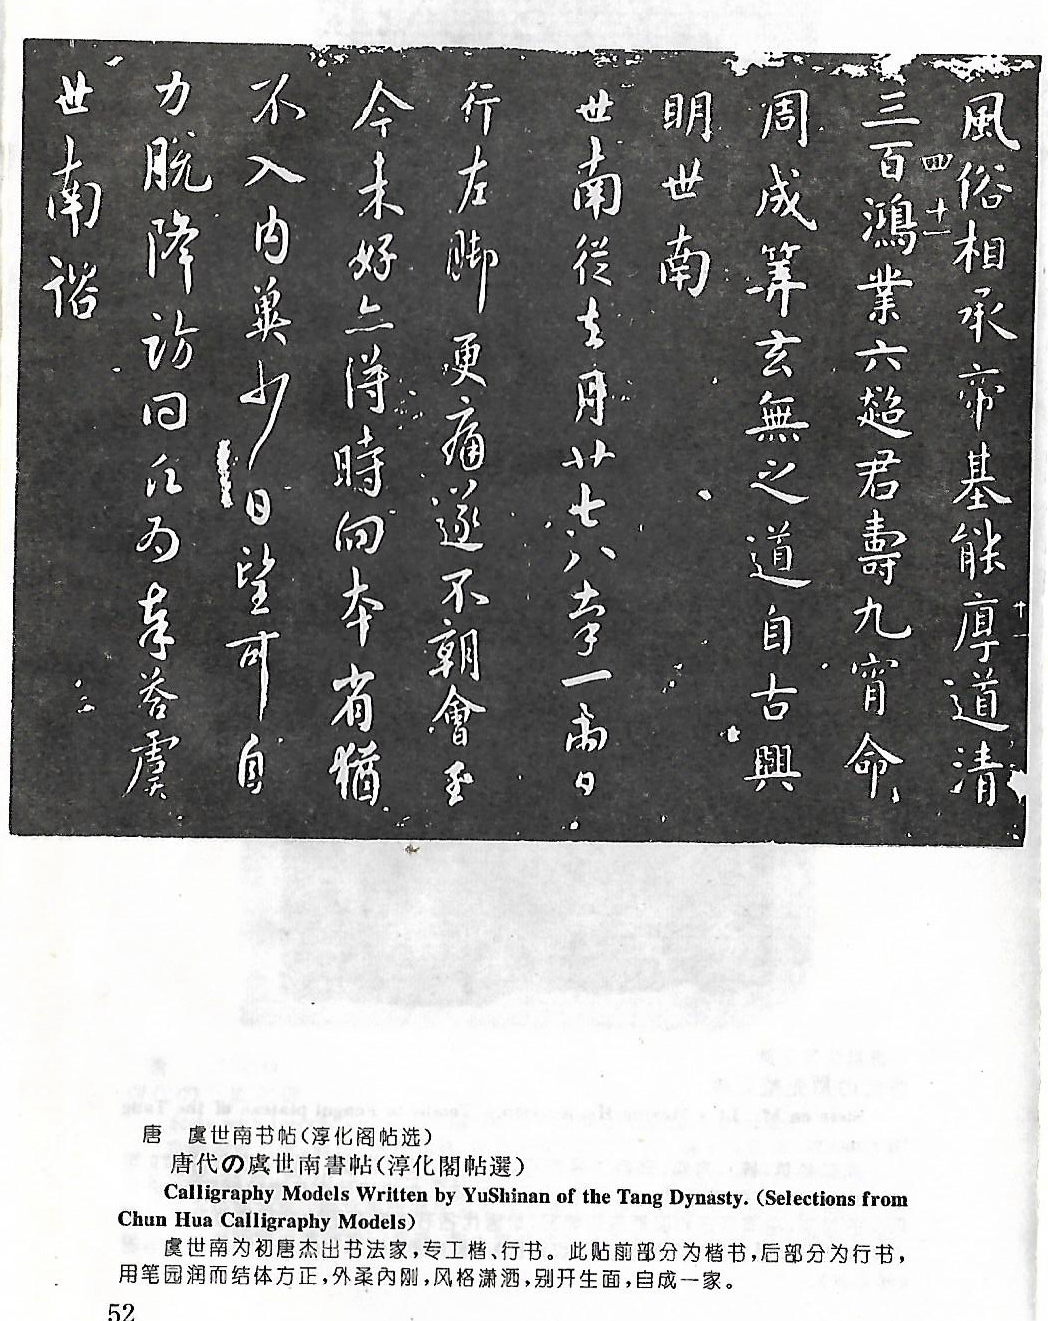 風俗相承帝基能厚道清
十一
三百鴻業六超君壽九霄命
四十一
周成筭玄無之道自古興
明世南
世南從去月廿七八率一兩日
行左脚更痛遂不朝會至
今未好亦得時向本省猶
不入内冀少日望可自
力脱降訪問為奉答虞
世南諮
唐 虞世南书帖(淳化阁帖选)
唐代の虞世南書帖(淳化閣帖選)
Calligraphy Models Written by YuShinan of the Tang Dynasty. (Selections from
Chun Hua Calligraphy Models)
虞世南为初唐杰出书法家,专工楷、行书。此贴前部分为楷书,后部分为行书,
用笔园润而结体方正,外柔内刚,风格潇洒,别开生面,自成一家。
52